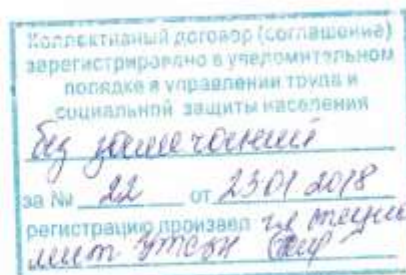 Коллективный договор (соглашение)
зарегистрировано в уведомительном
порядке в управлении труда и
социальной защиты населения
без замечаний
за № 22 от 23 01 2018
регистрацию произвел гл специа
лист УТСЗН